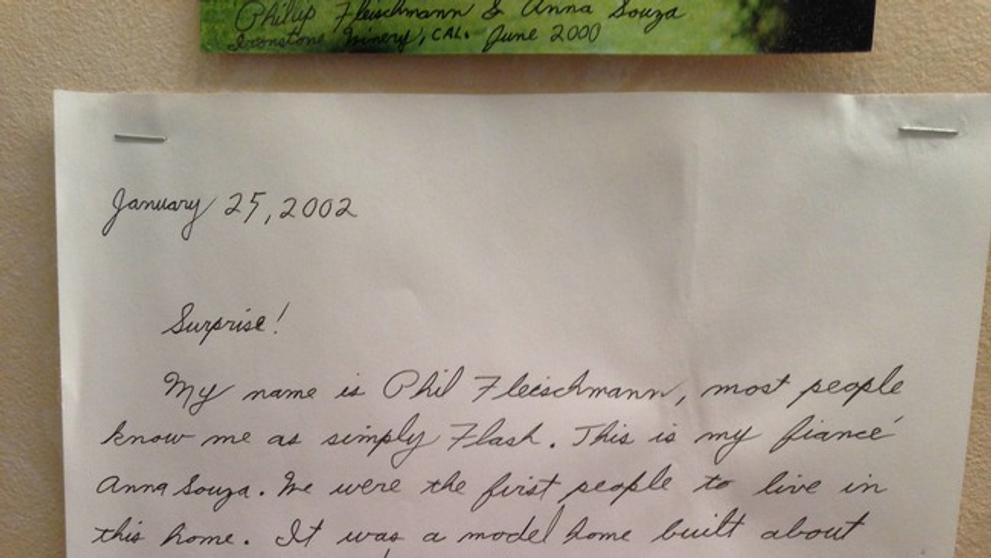 Philip Fleischmann & Anna Souza
Ironstone Winery, CAL. June 2000
January 25, 2002
Surprise!
My name is Phil Fleischmann, most people
know me as simply Flash. This is my fiancé
Anna Souza. We were the first people to live in
this home. It was a model home built about